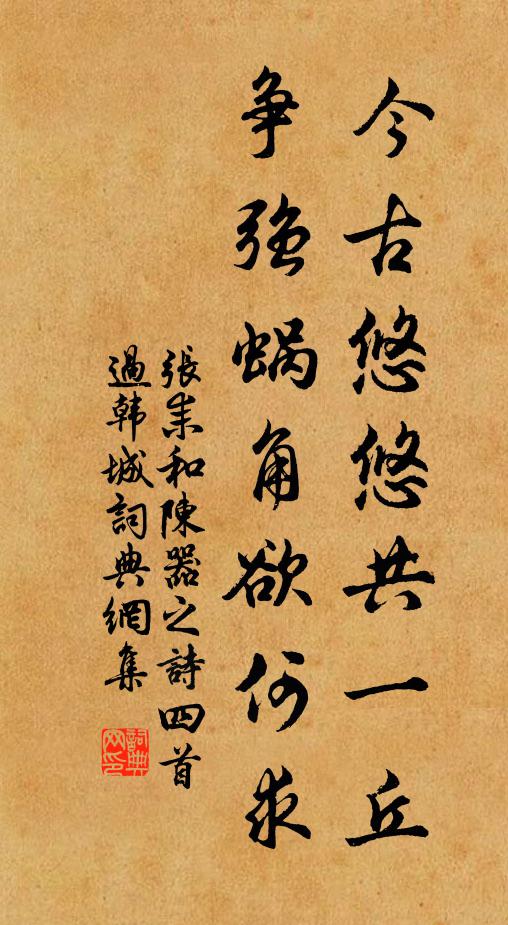 今古悠悠共一丘
争强蝸角欲何求
張耒和陳器之詩四首
過韩城詞典網集
詞典网印